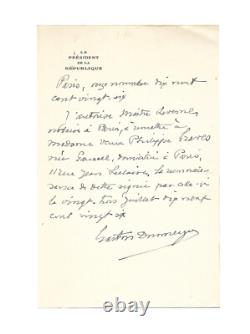 LE
PRÉSIDENT
DE LA
RÉPUBLIQUE
Paris, onze novembre dix neuf
cent vingt six
J'autorise Maître
notaire à Paris, à remettre à
Madame Veuve Philippe
née domiciliée à Paris,
11 rue Jean Leclaire, la reconnais
sance de dette signée par elle
le vingt trois Juillet dix neuf
cent vingt six
Gaston Doumergue